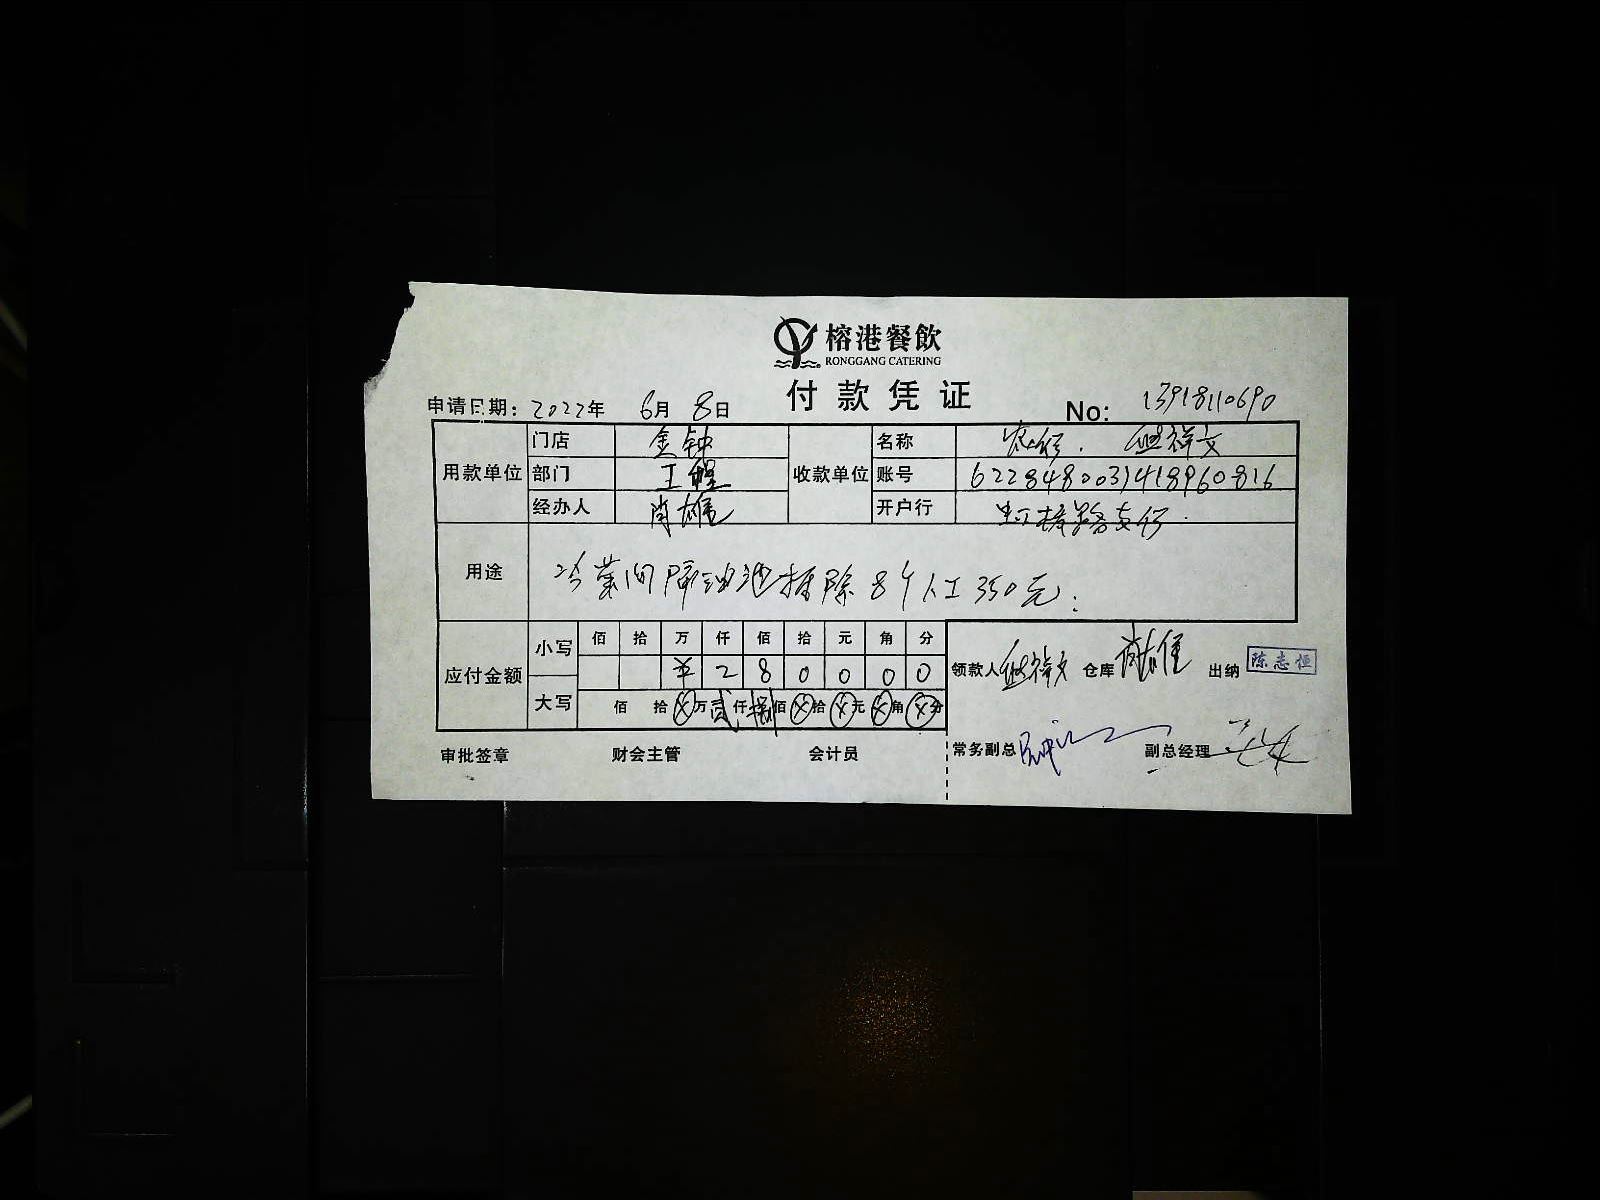 榕港餐飲
RONGGANG CATERING
付款凭证
申请日期: 2022年 6月 8日 No: 13918110690
用款单位 门店 金钟 收款单位 名称 农行. 祥文
部门 王程 账号 6228480031418960816
经办人 肖雄 开户行 虹桥路支行.
用途 冷菜间隔油池拆除 8个人工 350元.
应付金额 小写 佰 拾 万 仟 佰 拾 元 角 分
¥ 2 8 0 0 0 0
大写 佰 拾 ⊗万 贰仟 捌佰 ⊗拾 ⊗元 ⊗角 ⊗分
领款人 祥文 仓库 肖雄 出纳 陈志恒
审批签章 财会主管 会计员 常务副总 副总经理